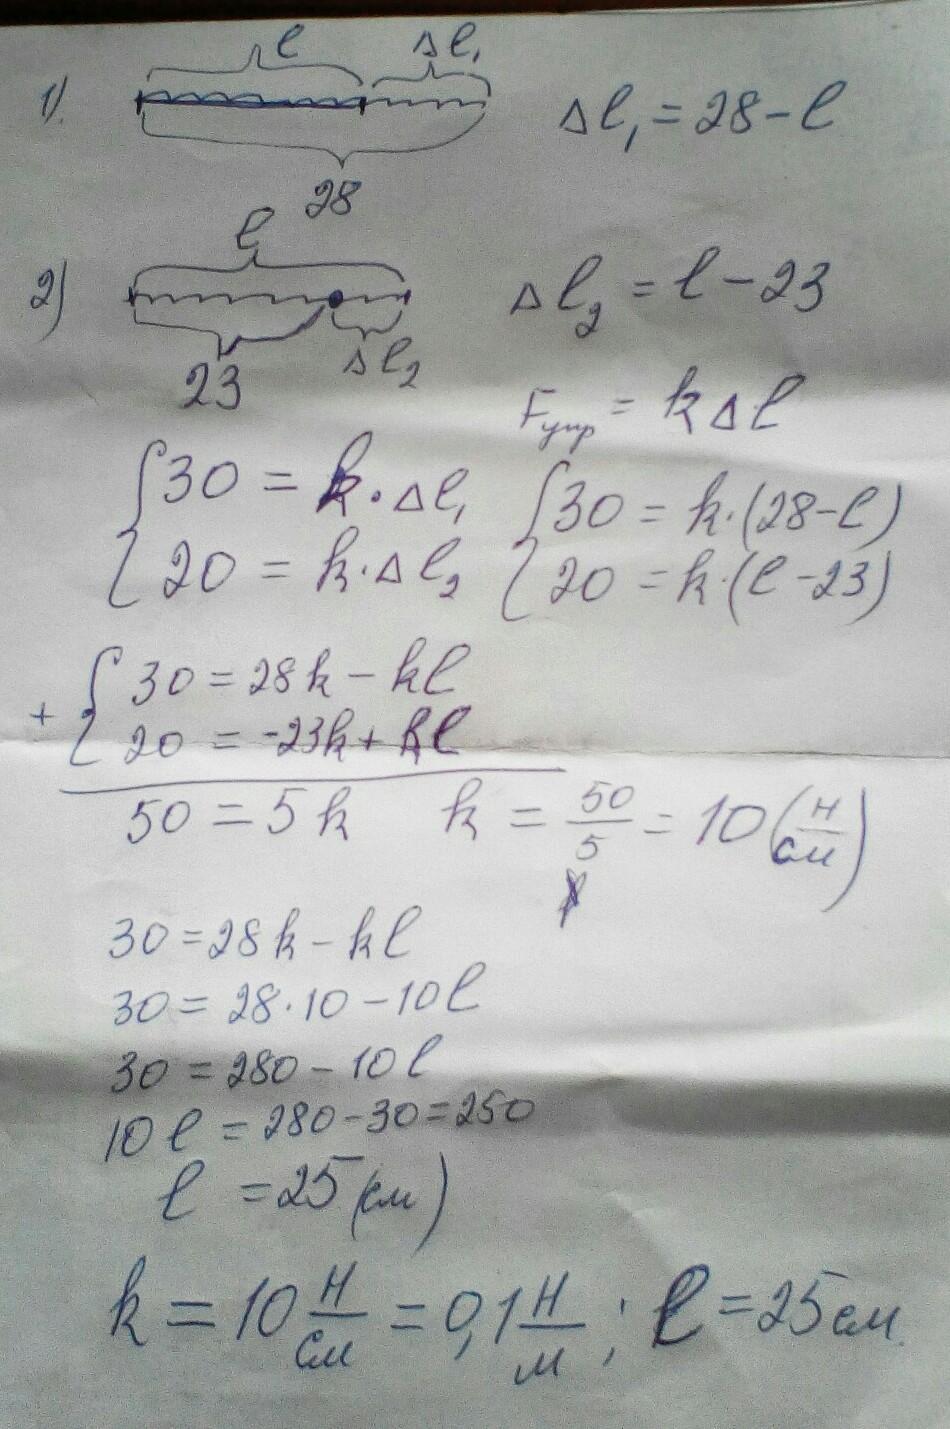 1). l Δl₁
Δl₁ = 28 - l
28
2) l
Δl₂ = l - 23
23 Δl₂
Fупр = kΔl
{30 = k·Δl₁ {30 = k·(28-l)
{20 = k·Δl₂ {20 = k·(l-23)
+ {30 = 28k - kl
{20 = -23k + kl
50 = 5k k = 50/5 = 10 (н/см)
30 = 28k - kl
30 = 28·10 - 10l
30 = 280 - 10l
10l = 280 - 30 = 250
l = 25 (см)
k = 10 н/см = 0,1 н/м ; l = 25 см.